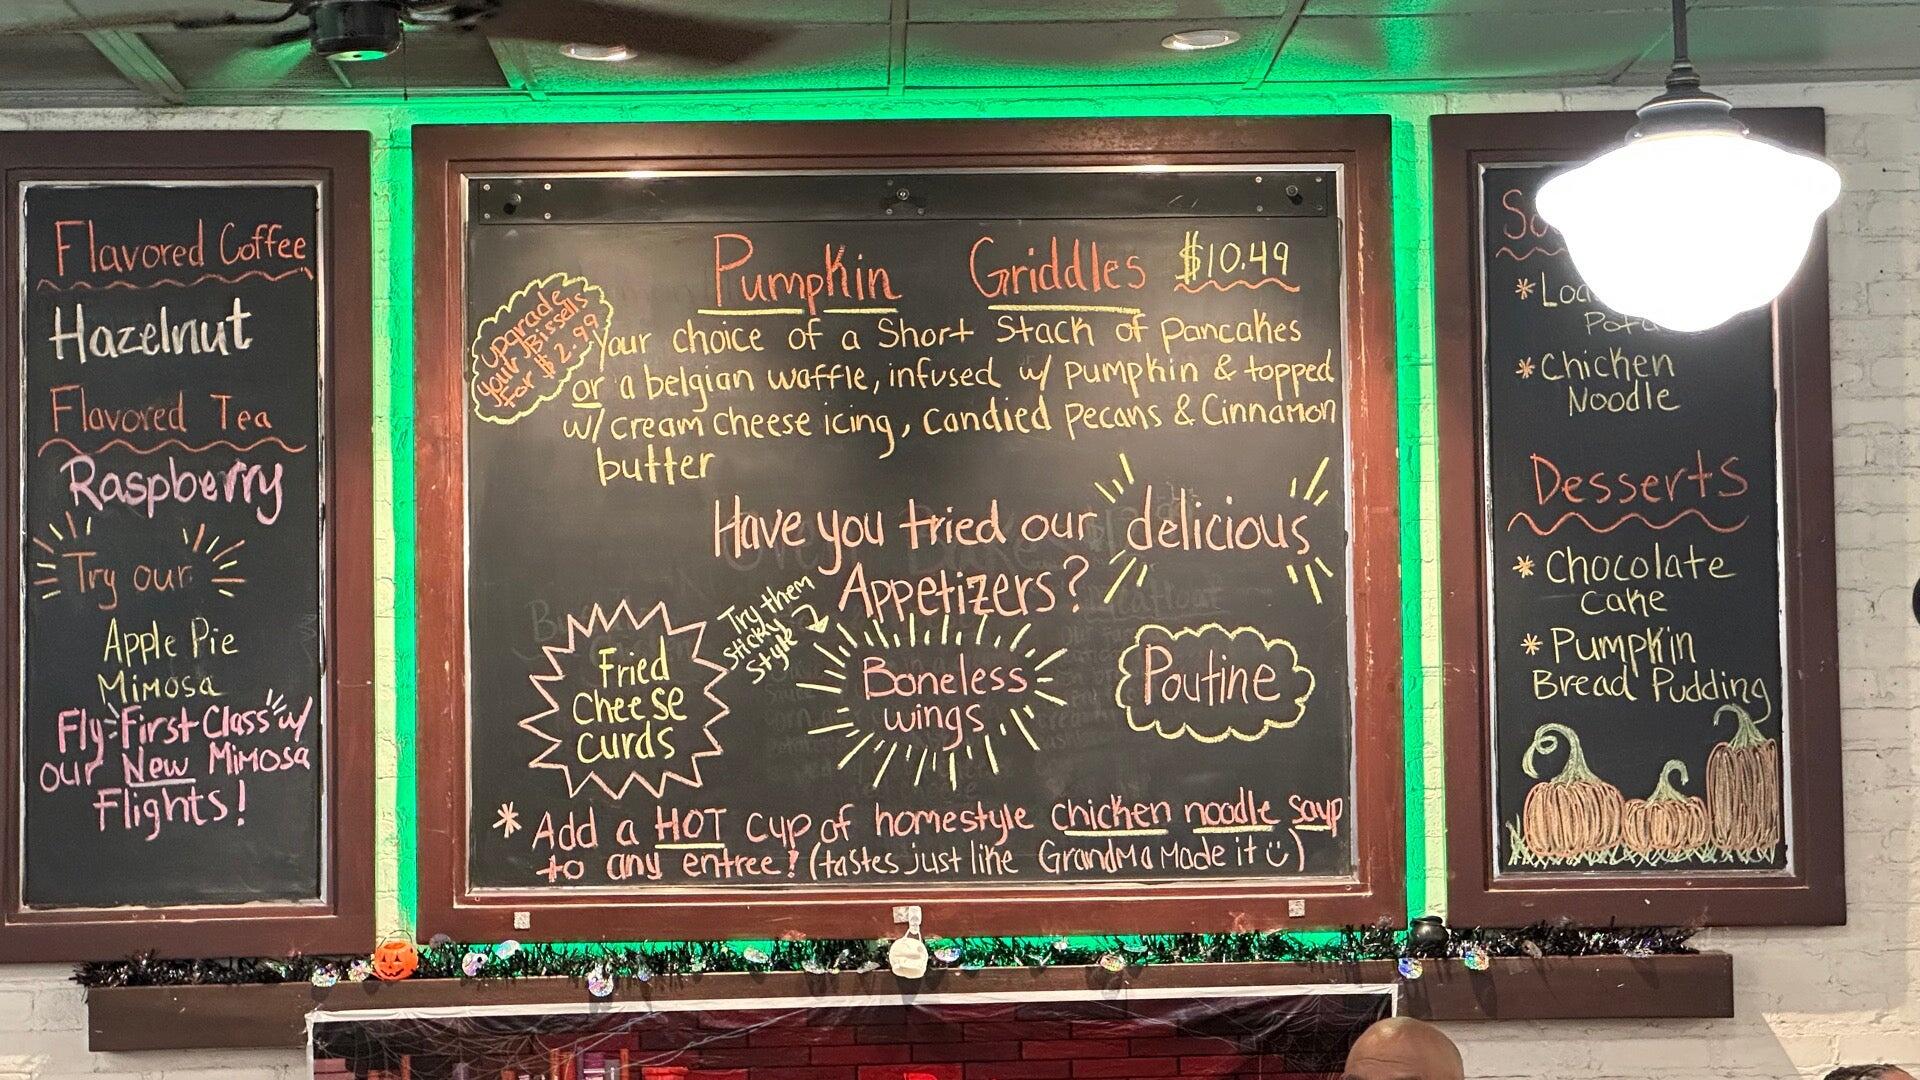 Flavored Coffee
Hazelnut
Flavored Tea
Raspberry
Try our
Apple Pie
Mimosa
Fly First Class w/
our New Mimosa
Flights!
Pumpkin Griddles $10.49
upgrade
your Bissells
for $2.99
Your choice of a Short Stack of pancakes
or a belgian waffle, infused w/ pumpkin & topped
w/ cream cheese icing, candied pecans & Cinnamon
butter
Have you tried our delicious
Appetizers?
Fried
Cheese
curds
Try them
sticky
style
Boneless
wings
Poutine
* Add a HOT cup of homestyle chicken noodle soup
to any entree! (tastes just like Grandma made it ü)
* Chicken
Noodle
Desserts
* Chocolate
cake
* Pumpkin
Bread Pudding